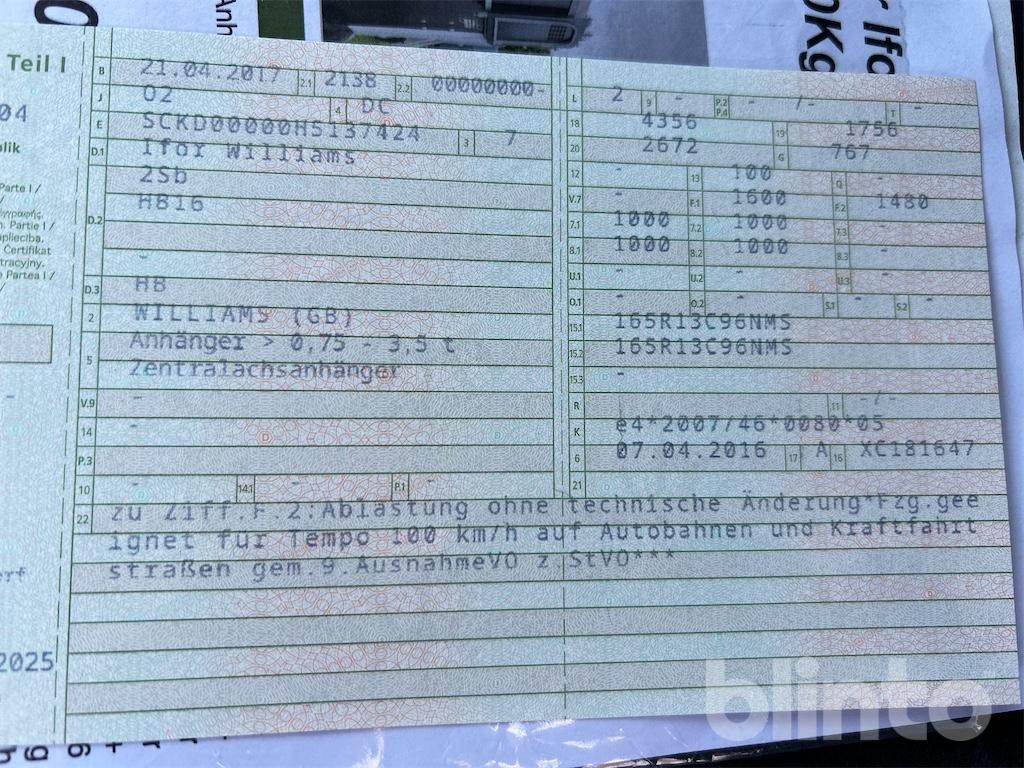 Teil I
B 21.04.2017 2.1 2138 2.2 00000000-
J 02 4 DC
E SCKD00000H5137424 3 7
D.1 Ifor Williams
D.2 2Sb
HB16
-
D.3 HB
2 WILLIAMS (GB)
5 Anhänger > 0,75 - 3,5 t
Zentralachsanhänger
V.9 -
14 -
P.3
10 - 14.1 - P.1 -
L 2 9 - P.2 P.4 - /- T -
18 4356 19 1756
20 2672 G 767
12 - 13 100 Q -
V.7 - F.1 1600 F.2 1480
7.1 1000 7.2 1000 7.3 -
8.1 1000 8.2 1000 8.3 -
U.1 - U.2 - U.3 -
O.1 - O.2 - S.1 - S.2 -
15.1 165R13C96NMS
15.2 165R13C96NMS
15.3 -
R 11 -/-
K e4*2007/46*0080*05
6 07.04.2016 17 A 16 XC181647
21
22 zu Ziff.F.2:Ablastung ohne technische Änderung*Fzg.gee
ignet für Tempo 100 km/h auf Autobahnen und Kraftfahrt
straßen gem.9.AusnahmeVO z.StVO***
04
Parte I /
. Partie I /
Certifikat
Partea I /
2025
blinto